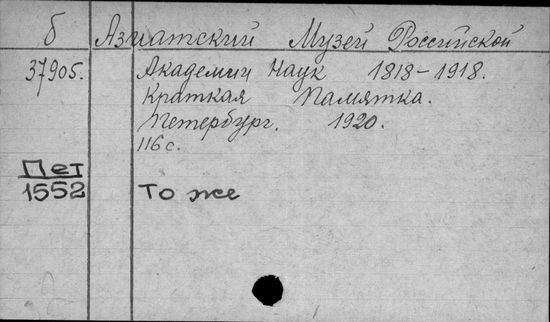 б Азиатский Музей Российской
37905. Академии Наук 1818-1918.
Краткая Памятка.
Петербург. 1920.
116 с.
Пет
1552 То же